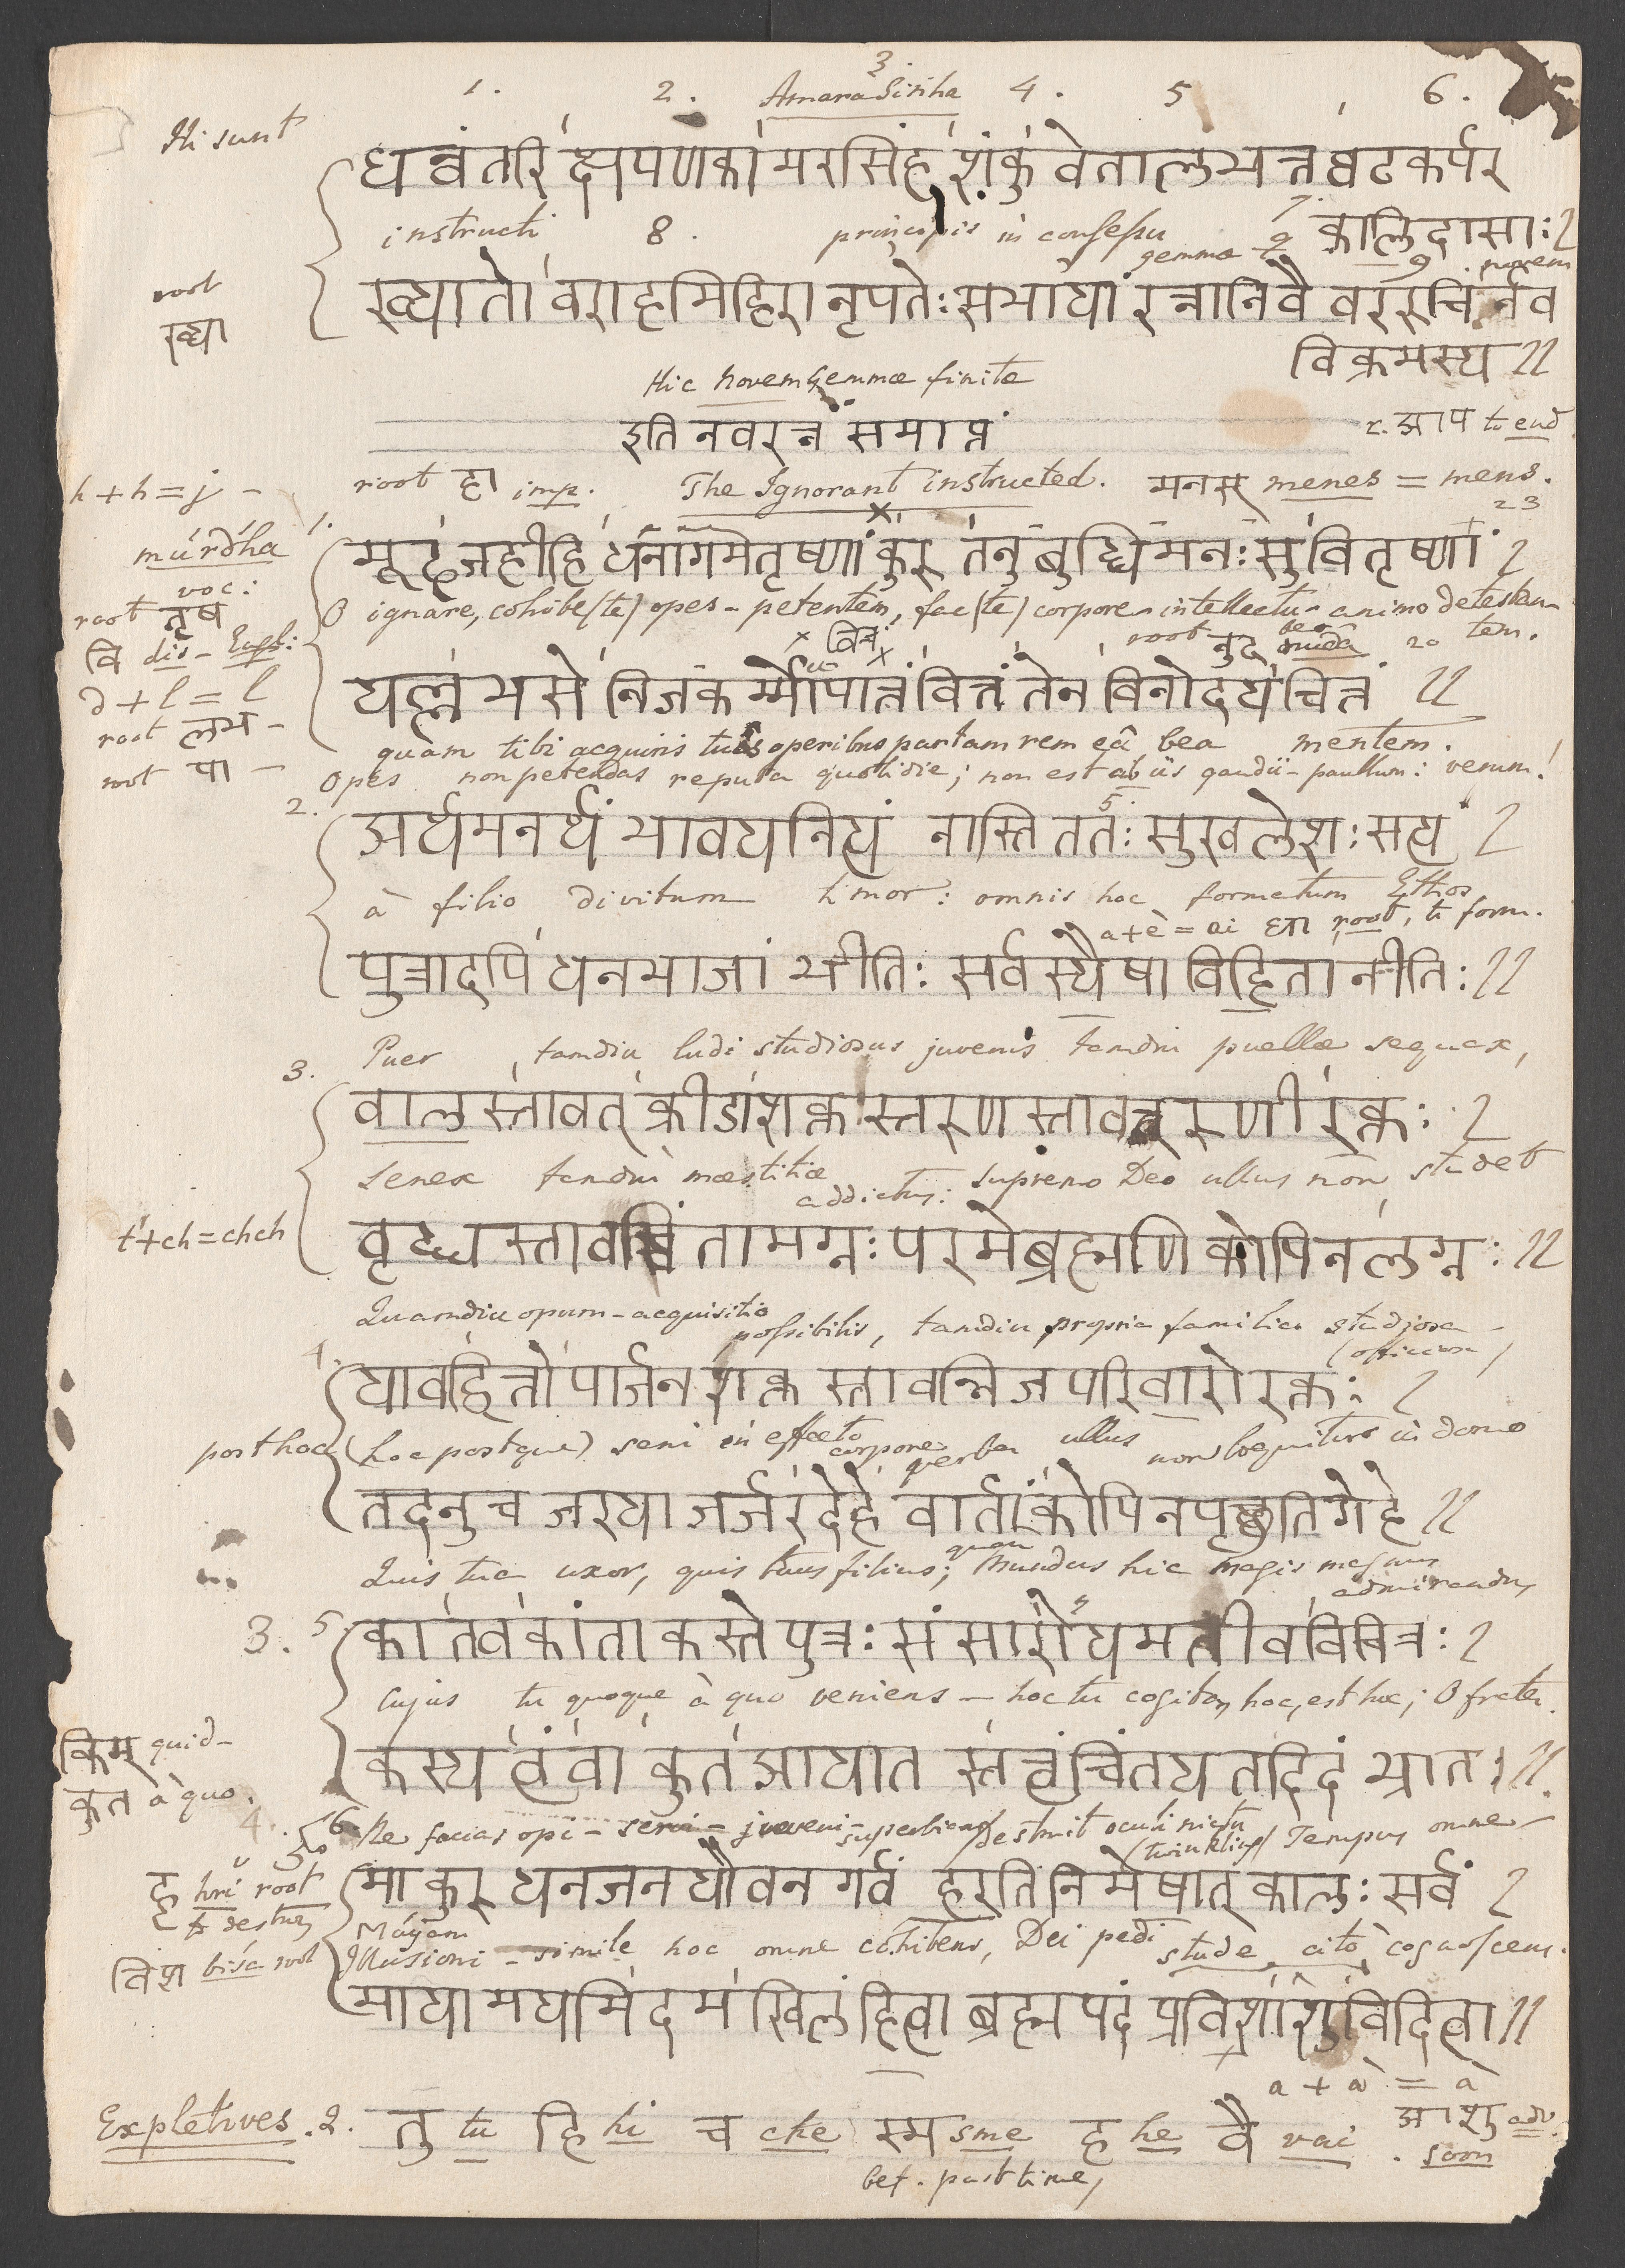 1. 2. 3 4. 5 6.
Amara Sinha
Hi sunt
धन्वंतरि क्षपणकामरसिंह शंकु वेतालभत्त घटकर्पर
instructi 8. principis in confessu 7.
gemmæ 9 novem
कालिदासाः।
root
ख्या
ख्यातो वराहमिहिरो नृपतेः सभायां रत्नानि वै वररुचिर्नव
विक्रमस्य ॥
Hic novem Gemmæ finitæ
इति नवरत्नं समाप्तं
r. आप to end
h + h = j -
root हा imp. The Ignorant instructed. मनस् menes = mens.
23
múrdha
voc:
1. मूढ जहीहि धनागमतृष्णां कुरु तनुबुद्धिमनःसुवितृष्णां ।
root तृष
O ignare, cohibe (te) opes - petentem, fac (te) corpore - intellectu - animo detestan-
tem.
वि dis -
× वित्तं × root नुद
d + l = l
root लभ -
यल्लभसे निजकर्म्मोपात्तं वित्तं तेन विनोदय चित्तं ॥
quam tibi acquiris tuis operibus partam rem eâ bea mentem.
root पा -
Opes non petendas reputa quotidie; non est ab iis gaudii - paullum: verum!
2. अर्थमनर्थं भावय नित्यं नास्ति ततः सुखलेशः सत्यं ।
à filio divitum timor: omnis hoc formatum Ethos
a + è = ai धा root, to form.
पुत्रादपि धनभाजां भीतिः सर्वस्यैषा विहिता नीतिः ॥
Puer tamdiu ludi studiosus juvenis tamdiu puellæ sequax,
3. वालस्तावत् क्रीडाशक्तस्तरुणस्तावत्तरुणीरक्तः ।
Senex tamdiu mæstitiæ addictus: supremo Deo ullus non studet
t + ch = chch
वृद्धस्तावच्चिंतामग्नः परमे ब्रह्मणि कोपि न लग्नः ॥
Quamdiu opum - acquisitio possibilis, tamdiu propria familia studiosa -
(officiosa)
4. यावद्वित्तोपार्जनशक्तस्तावन्निजपरिवारो रक्तः ।
post hoc (hoc postque) seni in effœto corpore verba ullus non loquitur in domo
तदनु च जरया जर्जरदेहे वार्तां कोपि न पृच्छति गेहे ॥
Quis tua uxor, quis tuus filius; quam Mundus hic magis magnus
admirandus
3. 5. का तव कांता कस्ते पुत्रः संसारोयमतीव विचित्रः ।
Cujus tu quoque à quo veniens - hoc tu cogita, hoc, est hoc; O frater.
किम् quid -
कस्य त्वं वा कुत आयातस्तत्त्वं चिंतय तदिदं भ्रातः ॥
कुत à quo.
4. 6. Ne facias opi - servi - juveni - superbiam destruit oculi nictu
(twinkling) Tempus omne -
हृ hri root
to destroy
मा कुरु धनजनयौवनगर्वं हरति निमेषात् कालः सर्वं ।
Máyam
विश bisa root
Illusioni - simile hoc omne cohibens, Dei pedi stude, cito, cognoscens.
मायामयमिदमखिलं हित्वा ब्रह्मपदं प्रविशाशु विदित्वा ॥
a + à = à
Expletives. 2. तु tu हि hi च che स्म sme ह he वै vai. आशु adv.
soon
bef. past time,